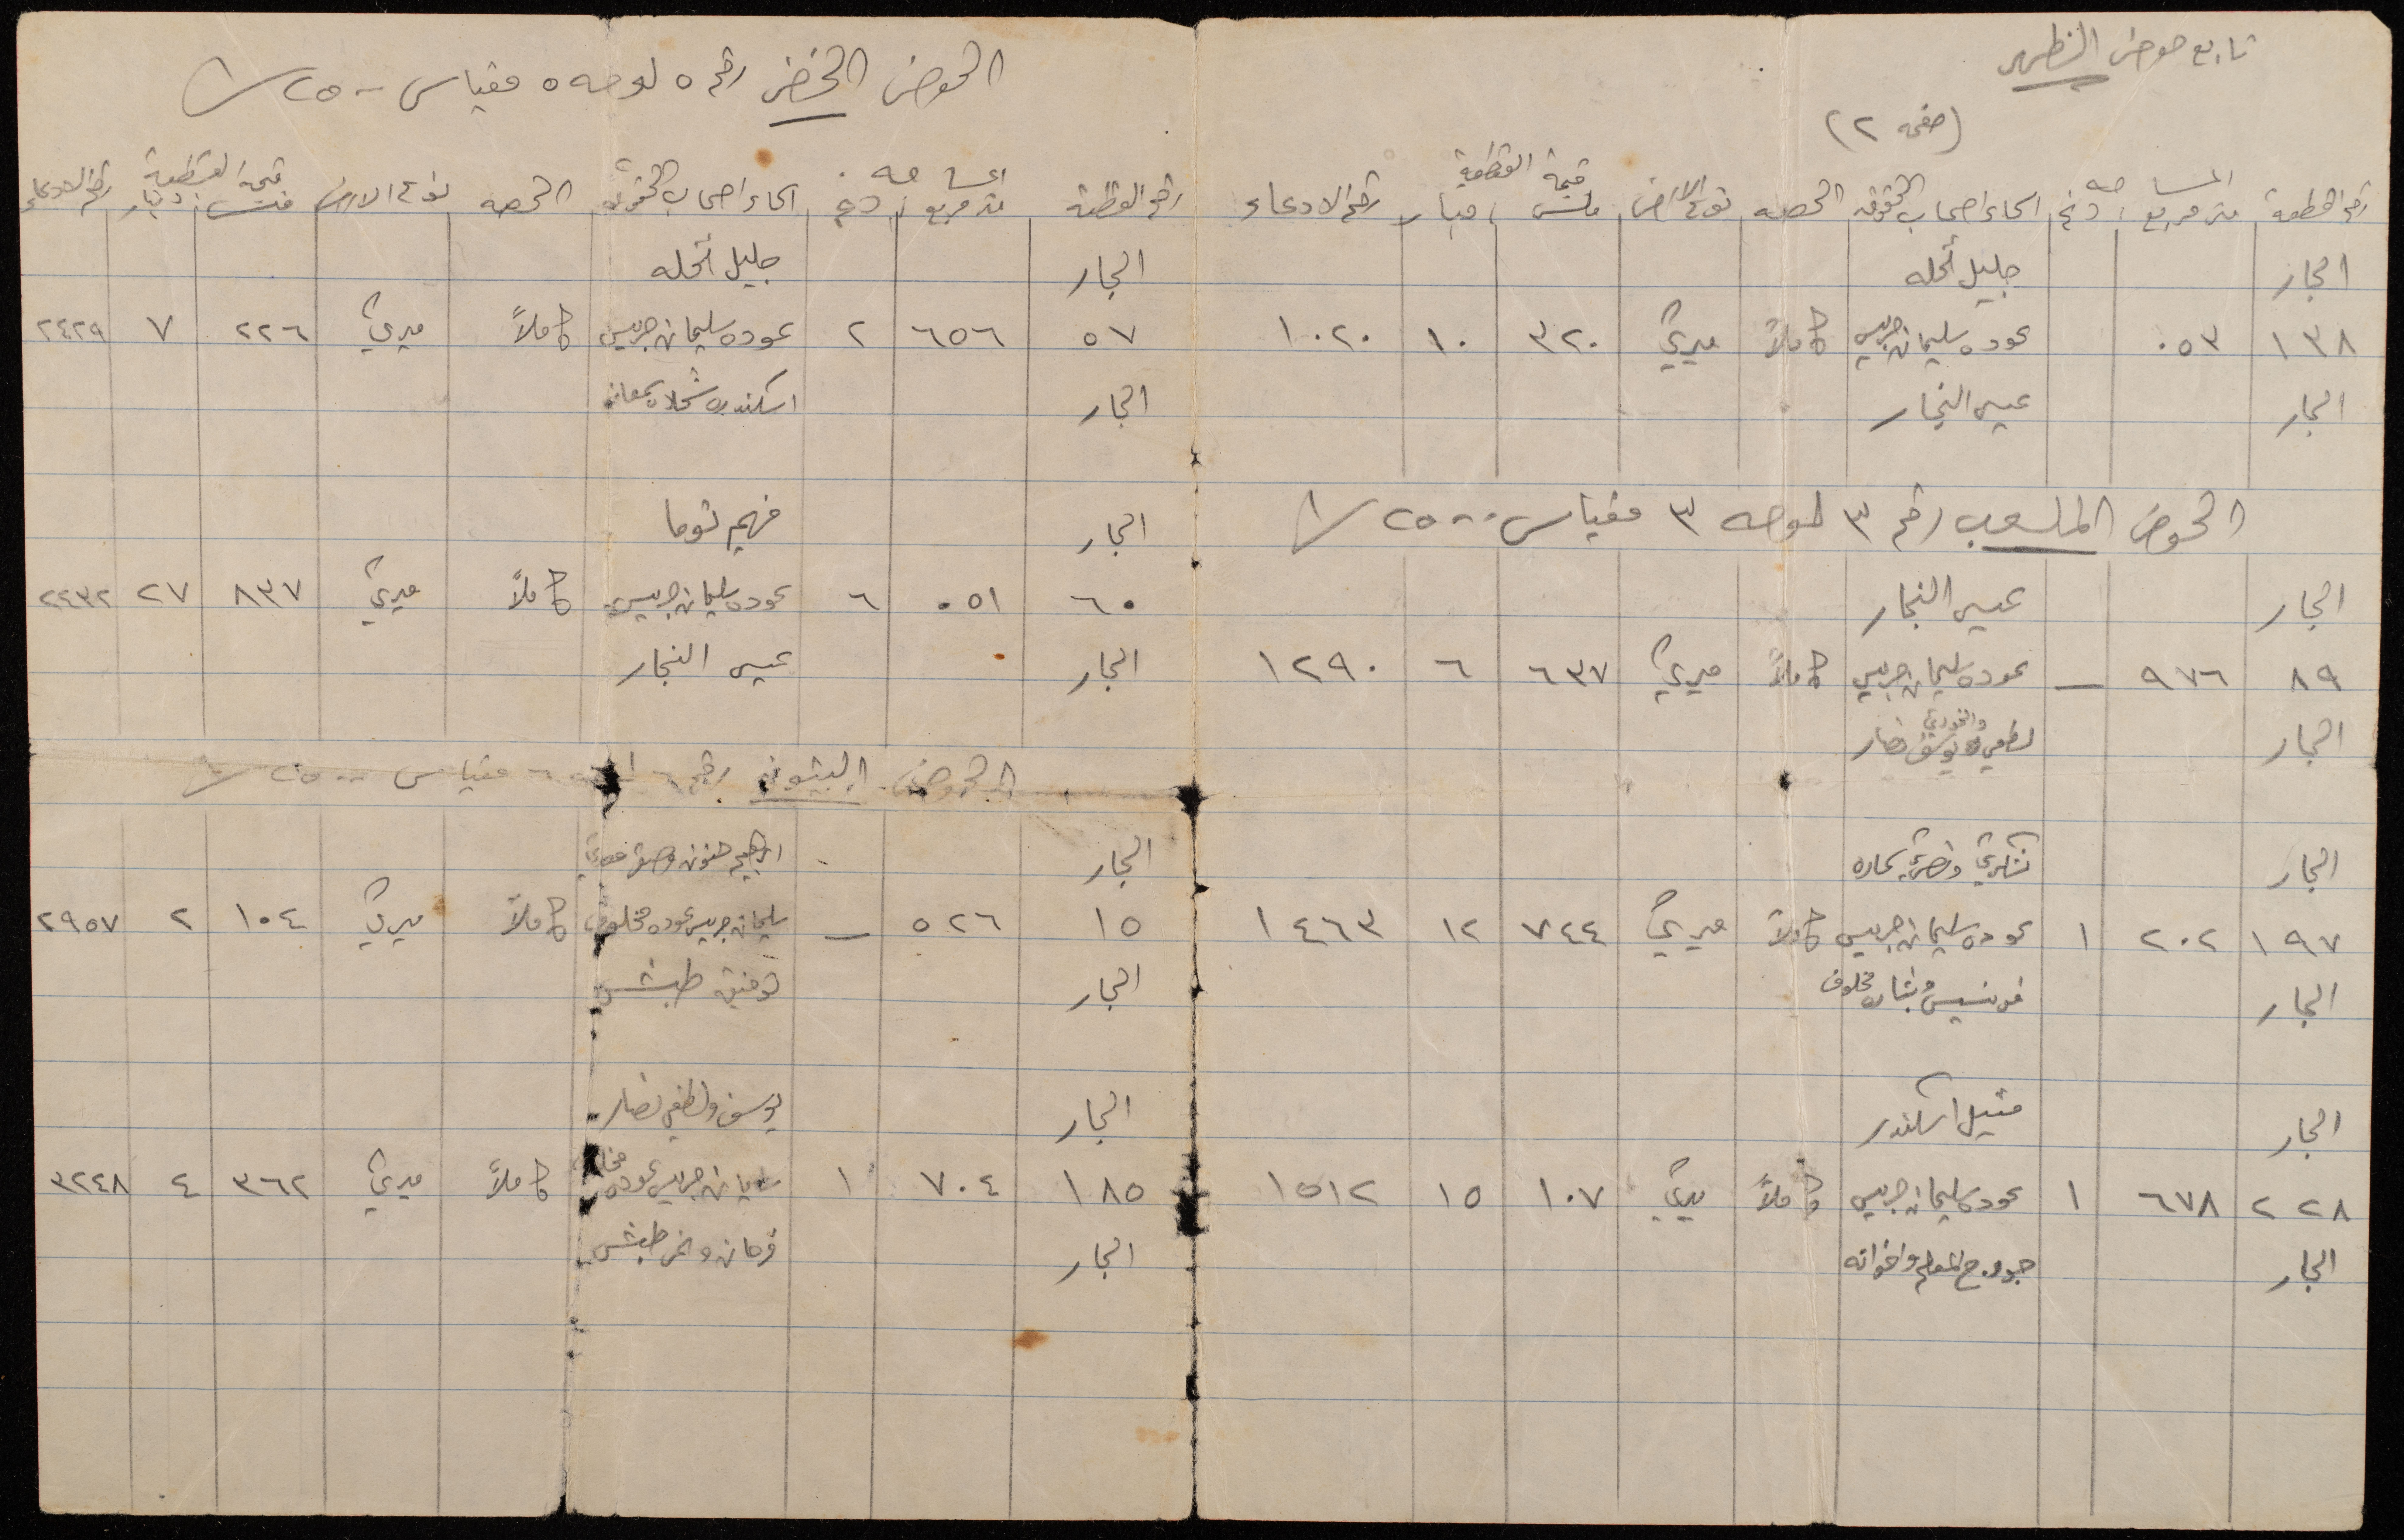 تابع حوض الظهر
(صفحه ٢)
رقم القطعة المساحه متر مربع دنم اسماء اصحاب الحقوق الحصه نوع الارض قيمة القطعة ملس دينار رقم الادعاء
الجار جليل نحله
١٣٨ ٠٥٣ عوده سليمان جريس كاملاً ميري ٣٢٠ ١٠ ١٠٢٠
الجار عيسى النجار
الحوض الملعب رقم ٣ لوحه ٣ مقياس ٢٥٠٠/١
الجار عيسى النجار
٨٩ ٩٧٦ — عوده سليمان جريس كاملاً ميري ٦٣٧ ٦ ١٢٩٠
الجار لطفي والخوري يوسف نصار
الجار شكري ونصري
١٩٧ ٢٠٢ ١ عوده سليمان جريس كاملاً ميري ٧٤٤ ١٢ ١٤٦٣
الجار فرنسيس وبشاره مخلوف
الجار متيل اسكندر
٢٢٨ ٦٧٨ ١ عوده سليمان جريس كاملاً ميري ١٠٧ ١٥ ١٥١٢
الجار جورج المعلم واخوانه
الحوض الخضر رقم ٥ لوحه ٥ مقياس ٢٥٠٠/١
رقم القطعة المساحه متر مربع دنم اسماء اصحاب الحقوق الحصه نوع الارض قيمة القطعة ملس دينار رقم الادعاء
الجار جليل نحله
٥٧ ٦٥٦ ٢ عوده سليمان جريس كاملاً ميري ٢٢٦ ٧ ٢٤٢٩
الجار اسكندر
الجار فهيم توما
٦٠ ٠٥١ ٦ عوده سليمان جريس كاملاً ميري ٨٣٧ ٢٧ ٢٤٣٢
الجار عيسى النجار
الحوض رقم ٦ ٦ مقياس ٢٥٠٠/١
الجار ابراهيم حنون
١٥ ٥٢٦ — سليمان جريس عوده مخلوف كاملاً ميري ١٠٤ ٢ ٢٩٥٧
الجار توفيق طبش
الجار يوسف ولطفي نصار
١٨٥ ٧٠٤ ١ سليمان جريس عوده كاملاً ميري ٣٦٢ ٤ ٣٢٤٨
الجار فرحان طبش